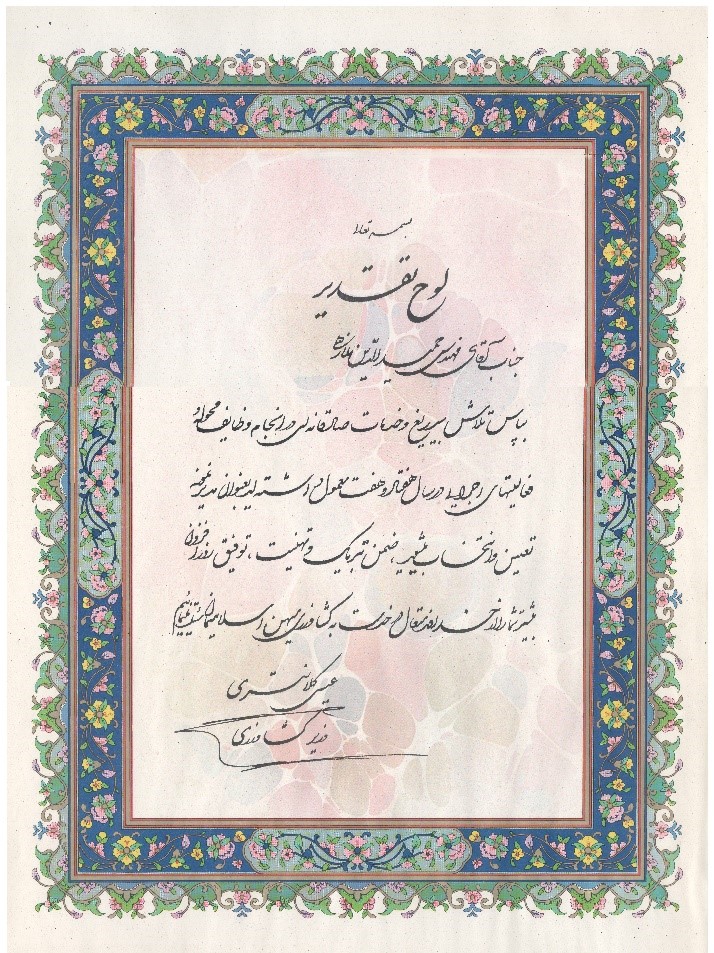 بسمه تعالی
لوح تقدیر
جناب آقای مهندس حمیدالدین
بپاس تلاش بیدریغ و خدمات صادقانه‌ای در انجام وظایف محوله
فعالیتهای اجرایی در سال هفتاد و هفت معمول داشته اید بعنوان مدیر نمونه
تعیین و انتخاب میشوید، ضمن تبریک و تهنیت، توفیق روزافزون
بیشتر شما را از خداوند متعال در خدمت به کشاورزی میهن اسلامیمان
عیسی کلانتری
وزیر کشاورزی